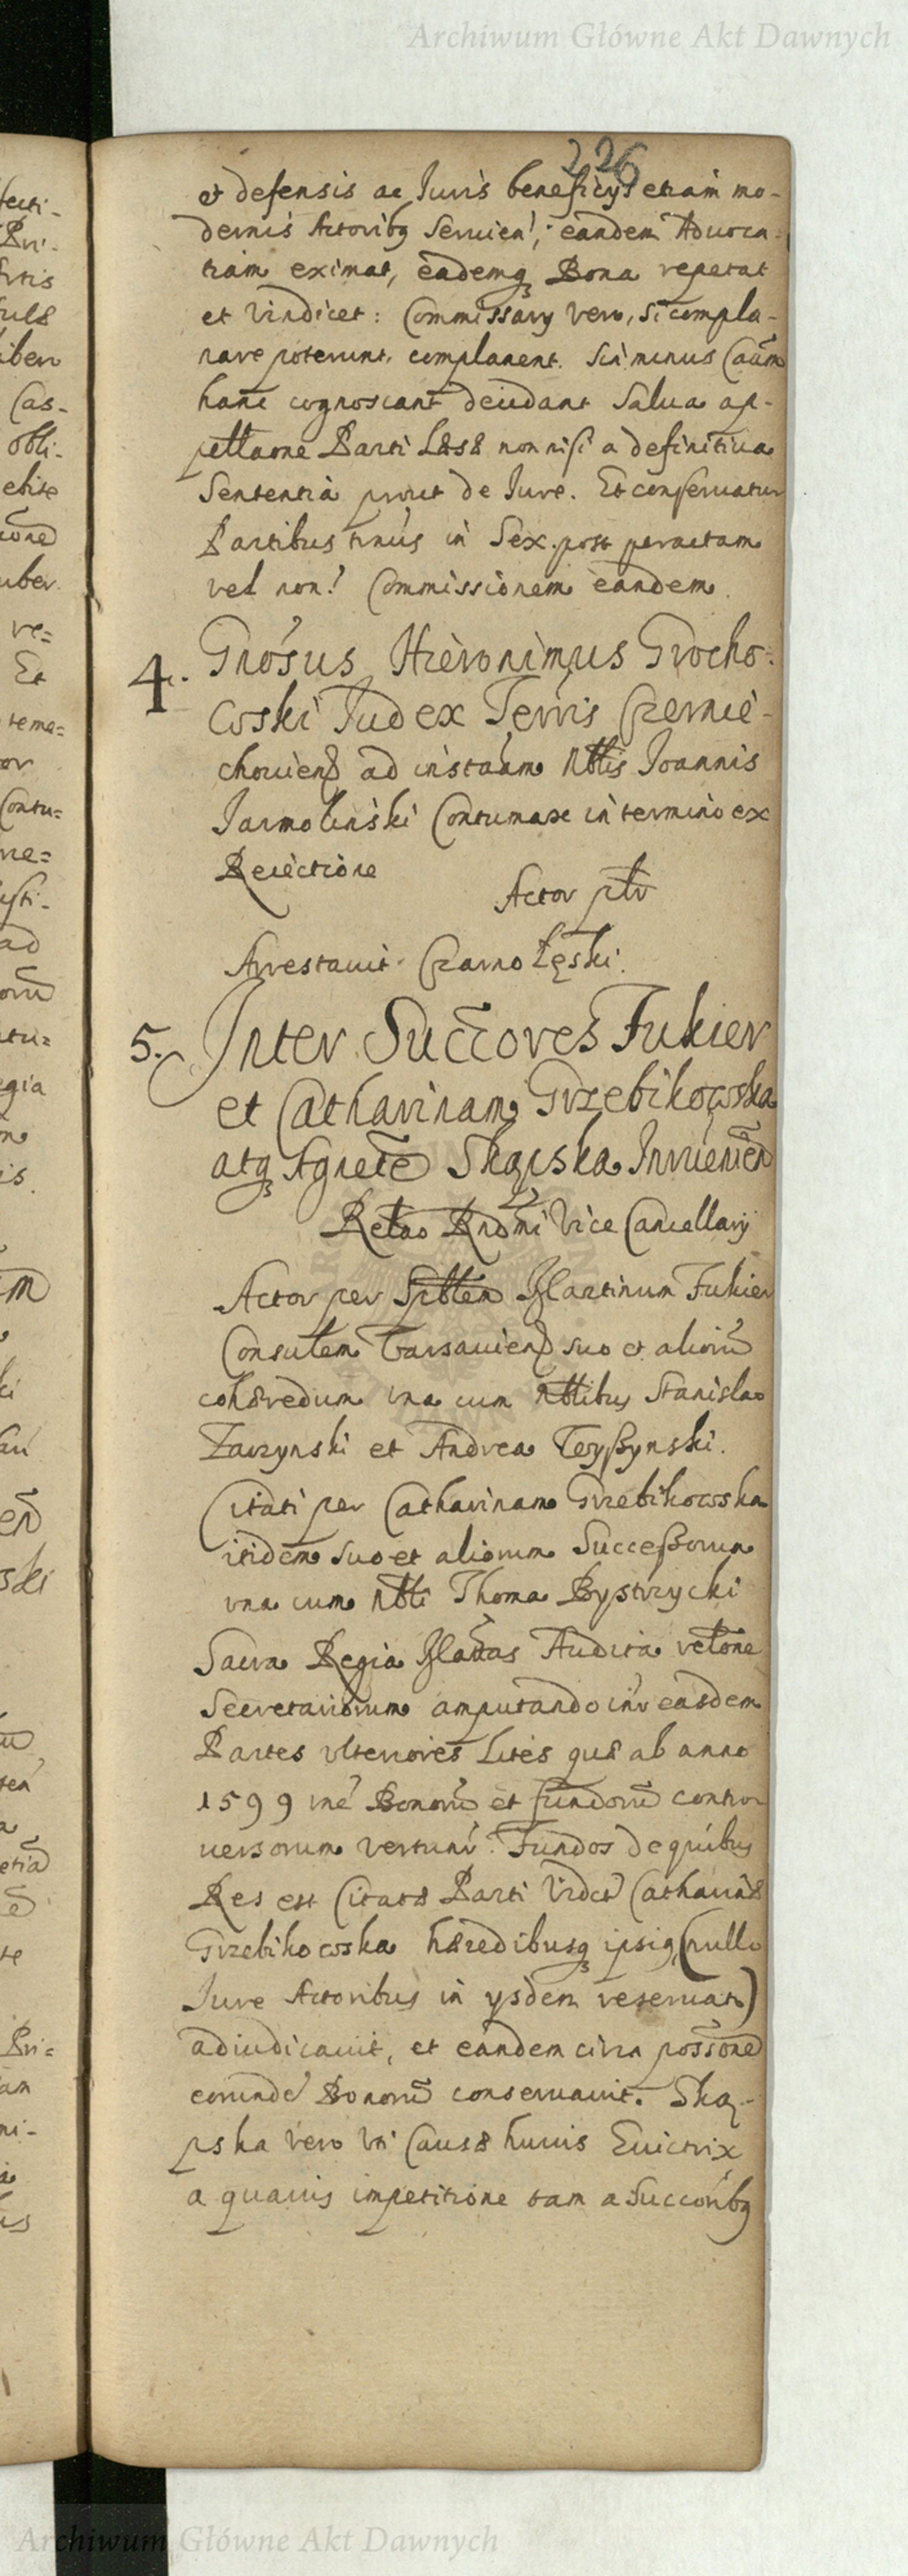 Archiwum Główne Akt Dawnych
226
et defensis ac Iuris beneficys etiam mo-
dernis Actoribq Seruien', eandem Aduoca-
tiam eximat, eademq Bona repetat
et Vindicet: Commissary vero, Si compla-
nare poterunt, complanent. Sin minus Caum
hanc cognoscant decidant Salua ap-
pellaone Parti Læsæ non nisi a definitiua
Sententia prout de Iure. Et conseruatur
Partibus tnus in Sex. post peractam
vel non! Commissionem eandem
4. Gnosus Hieronimus Grocho-
wski Iudex Terris Czernie-
chouien ad instaam Nblis Ioannis
Jarmolinski Contumax in termino ex
Reiectione
Actor ptr
Arrestauit Czarnolęski
5. Inter Succores Fukier
et Catharinam Grzebikowska
atq Agnete Skąpska Inuien
Relao Rndmi Vice Cancellarij
Actor per Spblem Martinum Fukier
Consulem Varsauien suo et alioru
cohæredum una cum Nblibus Stanislao
Zarzynski et Andrea Wyszynski.
Citati per Catharinam Grzebikowska
itidem suo et aliorum Successorum
vna cum Nbli Thoma Bystrzycki
Sacra Regia Mattas Audita relone
Secretariorum amputando inr easdem
Partes vlteriores Lites quæ ab anno
1599 rne Bonoru et fundoru contro
uersorum vertunr. Fundos de quibus
Res est Citatæ Parti Vidct Catharinæ
Grzebikowska hæredibusq ipsiq (nullo
Iure Actoribus in ysdem reseruato)
adiudicauit, et eandem circa possone
eorunde Bonoru conseruauit. Ską-
pska vero vti Causæ huius Euictrix
a quauis impetitione tam a Succoribq
Archiwum Główne Akt Dawnych